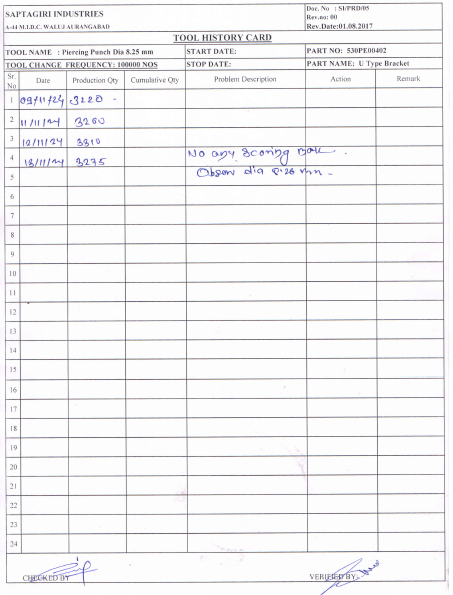 SAPTAGIRI INDUSTRIES
A-44 M.I.D.C. WALUJ AURANGABAD
Doc. No : SI/PRD/05
Rev.no: 00
Rev.Date:01.08.2017
TOOL HISTORY CARD
TOOL NAME : Piercing Punch Dia 8.25 mm START DATE: PART NO: 530PE00402
TOOL CHANGE FREQUENCY: 100000 NOS STOP DATE: PART NAME: U Type Bracket
Sr. No Date Production Qty Cumulative Qty Problem Description Action Remark
1 09/11/24 3220 -
2 11/11/24 3260
3 12/11/24 3310
4 13/11/24 3275 No any Scoring .
5 Observ dia 8.26 mm -
6
7
8
9
10
11
12
13
14
15
16
17
18
19
20
21
22
23
24
CHECKED BY VERIFIED BY